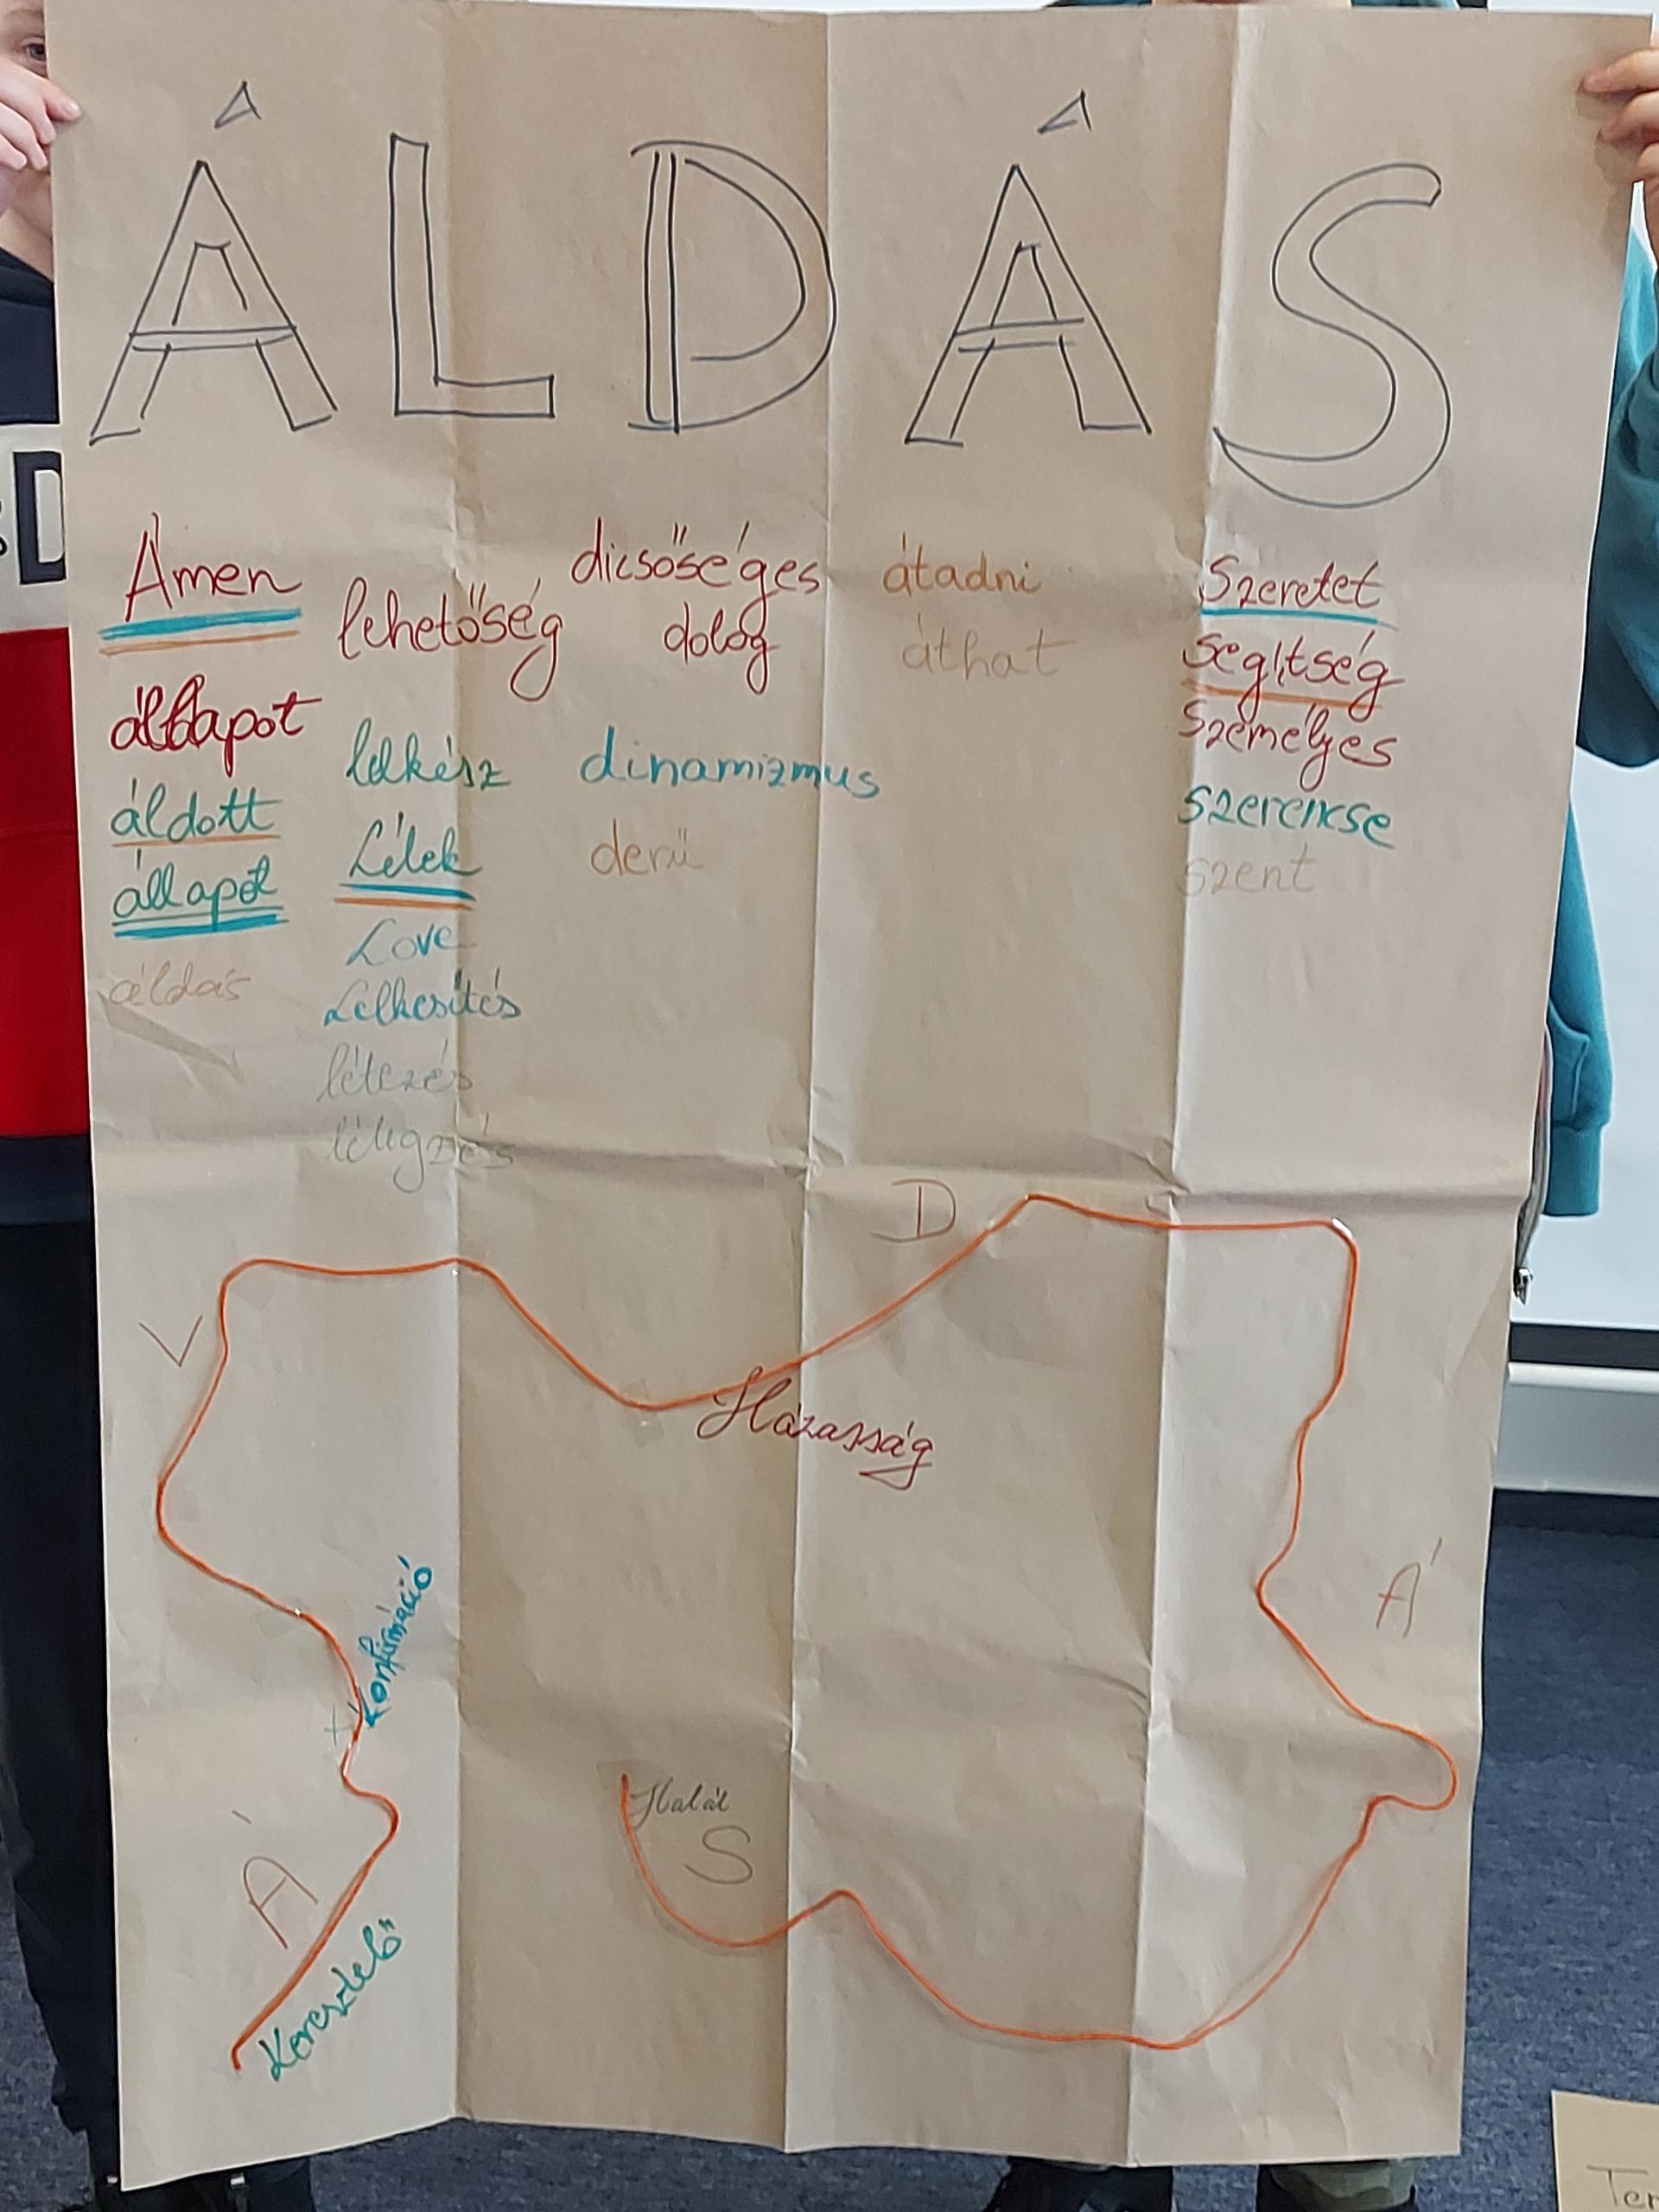 ÁLDÁS
Ámen
állapot
áldott
állapot
áldás
lehetőség
lelkész
Lélek
Love
Lelkesítés
létezés
lélegzés
dicsőséges
dolog
dinamizmus
derű
átadni
áthat
Szeretet
segítség
Személyes
szerencse
szent
D
V
Házasság
Konfirmáció
Á
Á
Halál
S
Keresztelő
D
Ter